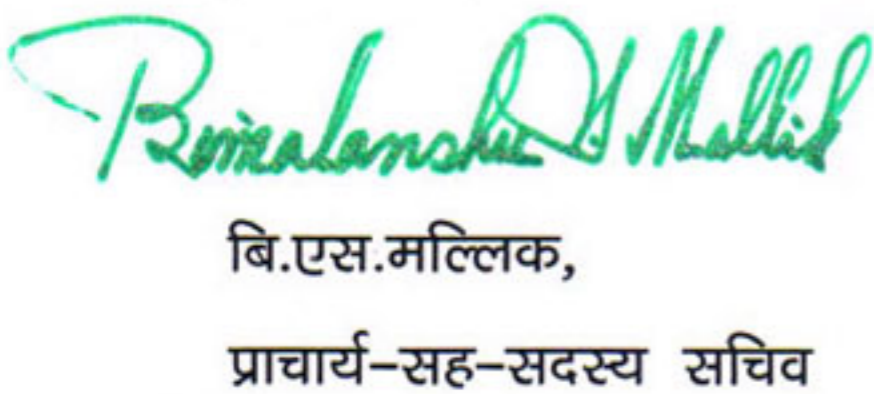 Bimalanshu S Mallick
बि.एस.मल्लिक,
प्राचार्य-सह-सदस्य सचिव